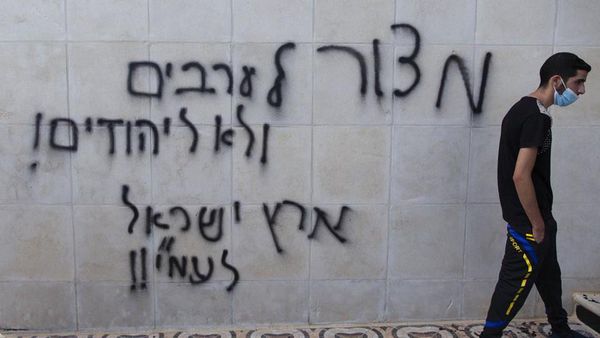 מצור לערבים
ולא ליהודים!
ארץ ישראל
לעמ"י!!
SPORT